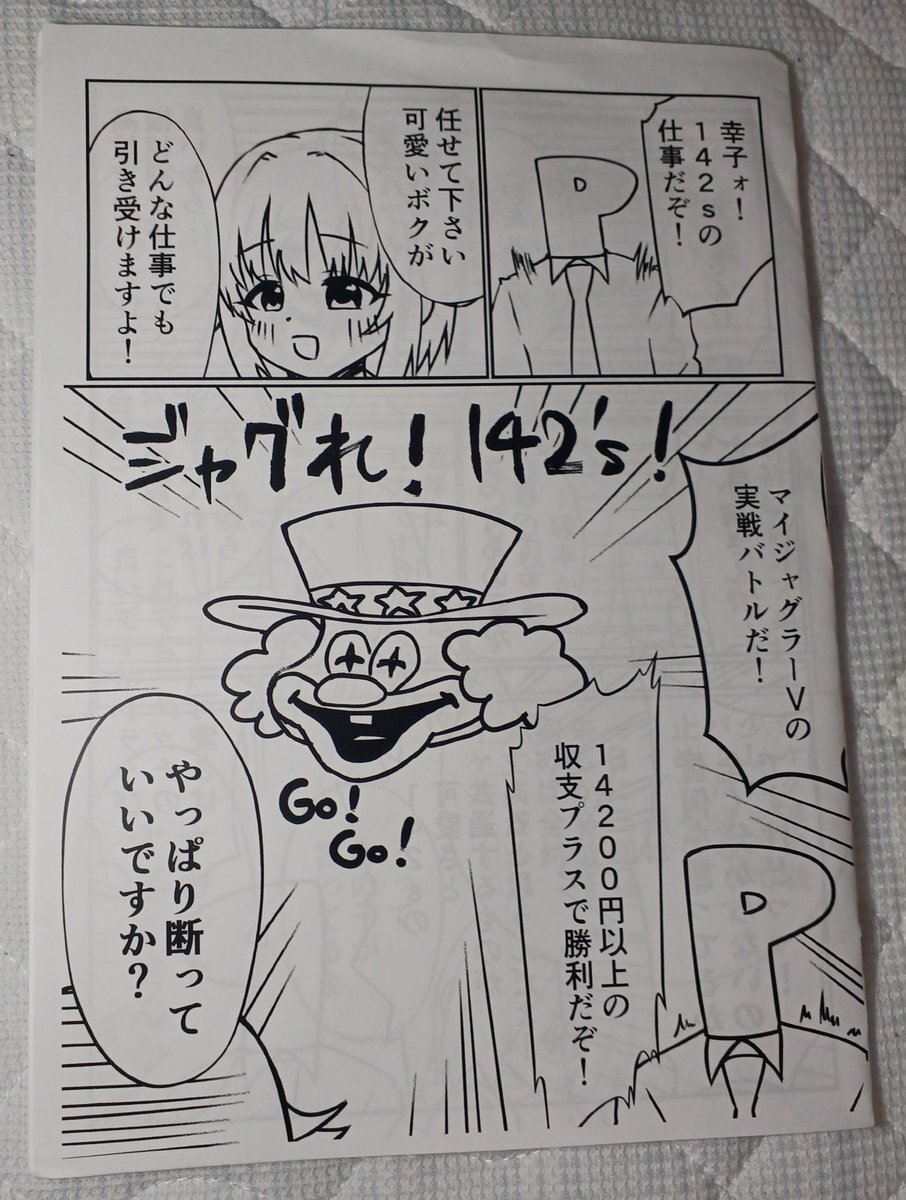 幸子ォ！
１４２ｓの
仕事だぞ！
任せて下さい
可愛いボクが
どんな仕事でも
引き受けますよ！
ジャグれ！142's！
マイジャグラーＶの
実戦バトルだ！
Go!
Go!
１４２００円以上の
収支プラスで勝利だぞ！
やっぱり断って
いいですか？
P
P